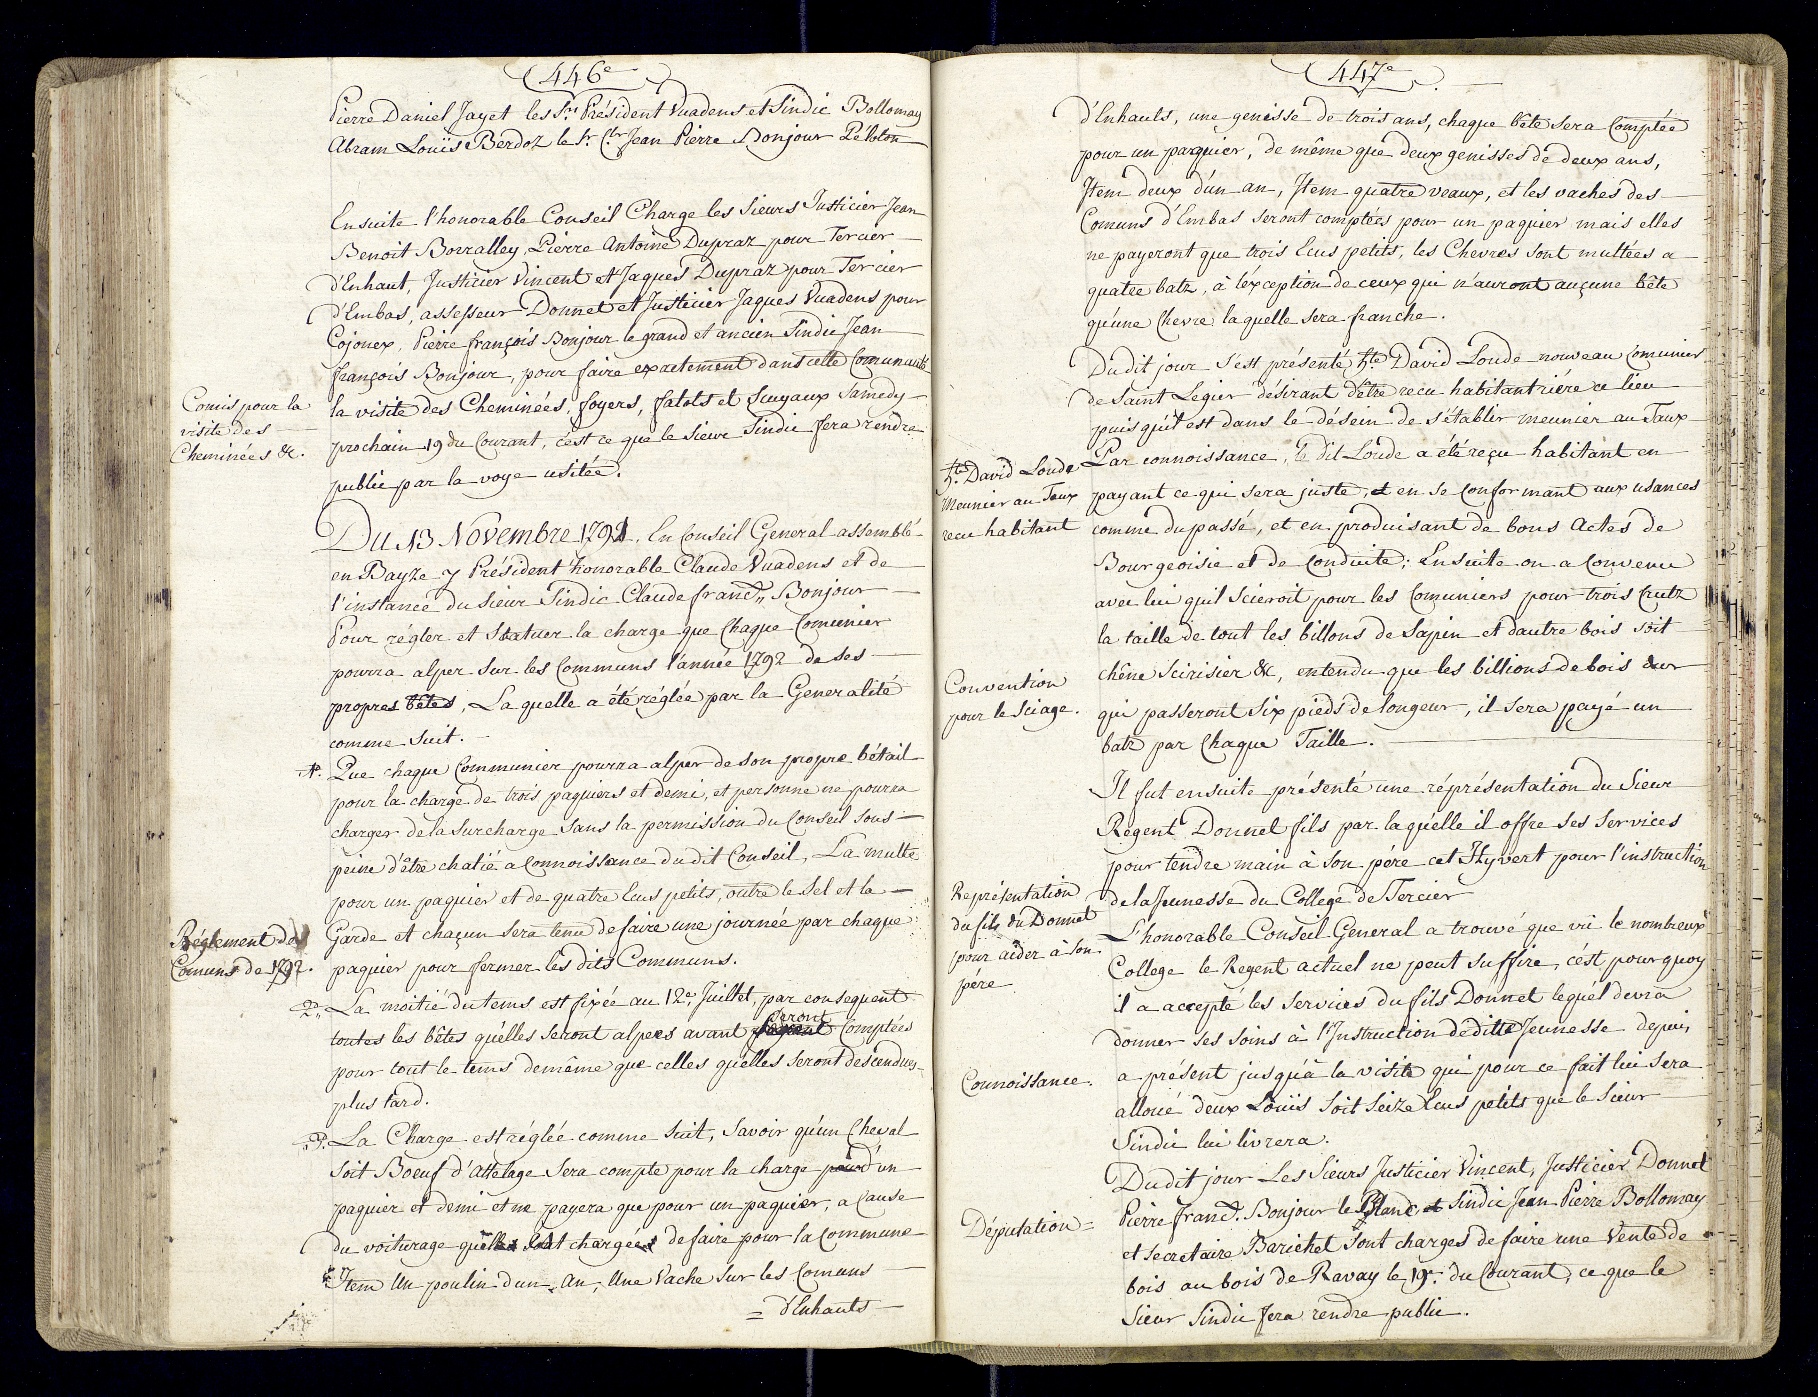 446e
Pierre Daniel Jayet les Srs Président Vuadens et Sindic Bollomay
Abram Louis Berdoz le Sr Clr Jean Pierre Bonjour Péloton
Ensuite l'honorable Conseil Charge les Sieurs Justicier Jean
Benoit Borralley, Pierre Antoine Dupraz pour Tercier
d'Enhaut, Justicier Vincent et Jaques Dupraz pour Tercier
d'Embas, assesseur Donnet et Justicier Jaques Vuadens pour
Cojonex, Pierre françois Bonjour le grand et ancien Sindic Jean
françois Bonjour, pour faire exactement dans cette Comunauté
Comis pour la
visite des
Cheminées &c.
la visite des Cheminées, foyers, falots et Suyaux Samedy
prochain 19 du Courant, c'est ce que le Sieur Sindic fera rendre
public par la voye usitée.
Du 13 Novembre 1791. En Conseil General assemblé
en Bayze y Président honorable Claude Vuadens et de
l'instance du Sieur Sindic Claude franç„ Bonjour
Pour régler et Statuer la charge que Chaque Comunier
pourra alper sur les Communs l'année 1792 de ses
propres bêtes, La quelle a été réglée par la Generalité
comme Suit.
1°. Que chaque Communier pourra alper de son propre bétail
pour la charge de trois paquiers et demi, et personne ne pourra
charger de la Surcharge Sans la permission du Conseil Sous
peine d'être chatié a Connoissance du dit Conseil, La multe
pour un paquier et de quatre Ecus petits, outre le Sel et la
Réglement des
Comuns de 1792.
Garde et chaçun sera tenu de faire une journée par chaque
paquier pour fermer les dits Communs.
2°„ La moitié du tems est fixée au 12e. Juillet, par consequent
toutes les bêtes qu'elles seront alpées avant seront Comptées
pour tout le tems de même que celles qu'elles seront descendues
plus tard.
3°. La Charge est réglée comme Suit, Savoir qu'un Cheval
soit Boeuf d'attelage Sera compte pour la charge d'un
paquier et demi et ne payera que pour un paquier, a Cause
du voiturage qu'elles sont chargées de faire pour la Commune
Item Un poulin d'un An, Une Vache Sur les Comuns
= d'Enhauts
447e
d'Enhauts, une genisse de trois ans, chaque bête sera Comptée
pour un paquier, de même que deux genisses de deux ans,
Item deux d'un an, Item quatre veaux, et les vaches des
Comuns d'Embas seront comptées pour un paquier mais elles
ne payeront que trois Ecus petits, les Chevres sont multées a
quatre batz, à l'éxception de ceux qui n'auront auçune bête
qu'une Chevre laquelle Sera franche.
Du dit jour S'est présenté hble David Loude nouveau Comunier
de Saint Legier désirant d'être reçu habitant riére ce lieu
puis qu'il est dans le désein de s'établir meunier au Taux
hble David Loude
Meunier au Taux
recu habitant
Par connoissance, le dit Loude a été reçu habitant en
payant ce qui sera juste, et en se Conformant aux usances
comme du passé, et en produisant de bons actes de
Bourgeoisie et de Conduite; Ensuite on a Convenu
avec lui quil Scieroit pour les Comuniers pour trois Crutz
la taille de tout les billons de Sapin et dautre bois soit
Convention
pour le Sciage.
chêne Scirisier &c, entendu que les billions de bois dur
qui passeront Six pieds de longeur, il sera payé un
batz par Chaque Taille.
Il fut ensuite présenté une réprésentation du Sieur
Régent Donnet fils par laquelle il offre ses Services
pour tendre main à Son pére cet Hyvert pour l'instruction
Représentation
du fils du Donnet
pour aider à Son
pére
de la Jeunesse du College de Tercier
L'honorable Conseil General a trouvé que vû le nombreux
College le Regent actuel ne peut Suffire, c'ést pour quoy
il a accepté les Services du fils Donnet lequél devra
donner ses soins à l'Instruction de ditte Jeunesse depuis
Connoissance.
a présent jusqu'à la visite qui pour ce fait lui sera
alloué deux Louis Soit Seize Ecus petits que le Sieur
Sindic lui livrera.
Du dit jour Les Sieurs Justicier Vincent, Justicier Donnet
Députation =
Pierre Franç. Bonjour le Blanc et Sindic Jean Pierre Bollomay
et Secretaire Barichet Sont charges de faire une Vente de
bois au bois de Ravay le 19e. du Courant, ce que le
Sieur Sindic fera rendre public.